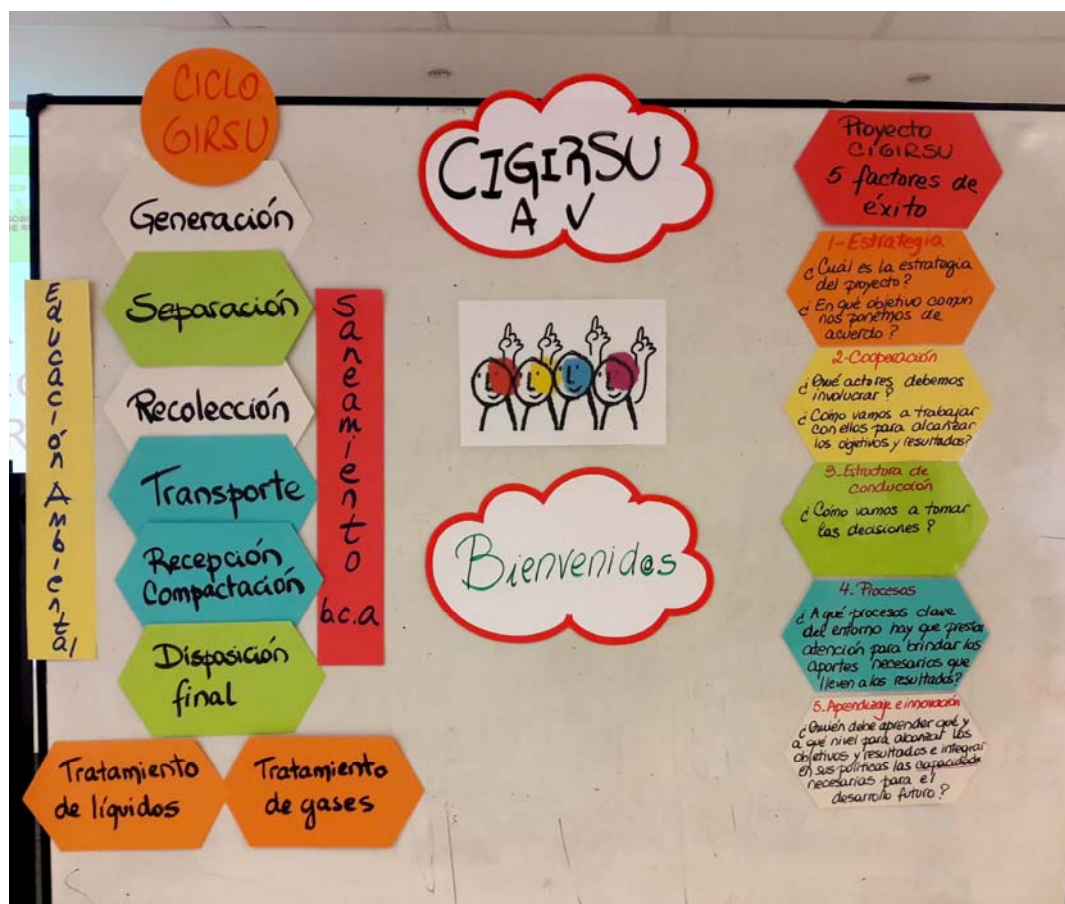 CICLO
GIRSU
Generación
Separación
Recolección
Transporte
Recepción
Compactación
Disposición
final
Tratamiento
de líquidos
Tratamiento
de gases
Educación Ambiental
Saneamiento b.c.a
CIGIRSU
A V
Bienvenidos
Proyecto
CIGIRSU
5 factores de
éxito
1-Estrategia
¿Cuál es la estrategia
del proyecto?
¿En qué objetivo común
nos ponemos de
acuerdo?
2-Cooperación
¿Qué actores debemos
involucrar?
¿Cómo vamos a trabajar
con ellos para alcanzar
los objetivos y resultados?
3. Estructura de
conducción
¿Cómo vamos a tomar
las decisiones?
4. Procesos
¿A qué procesos clave
del entorno hay que prestar
atención para brindar los
aportes necesarios que
lleven a los resultados?
5. Aprendizaje e innovación
¿Quién debe aprender qué y
a qué nivel para alcanzar los
objetivos y resultados e integrar
en sus políticas las capacidades
necesarias para el
desarrollo futuro?